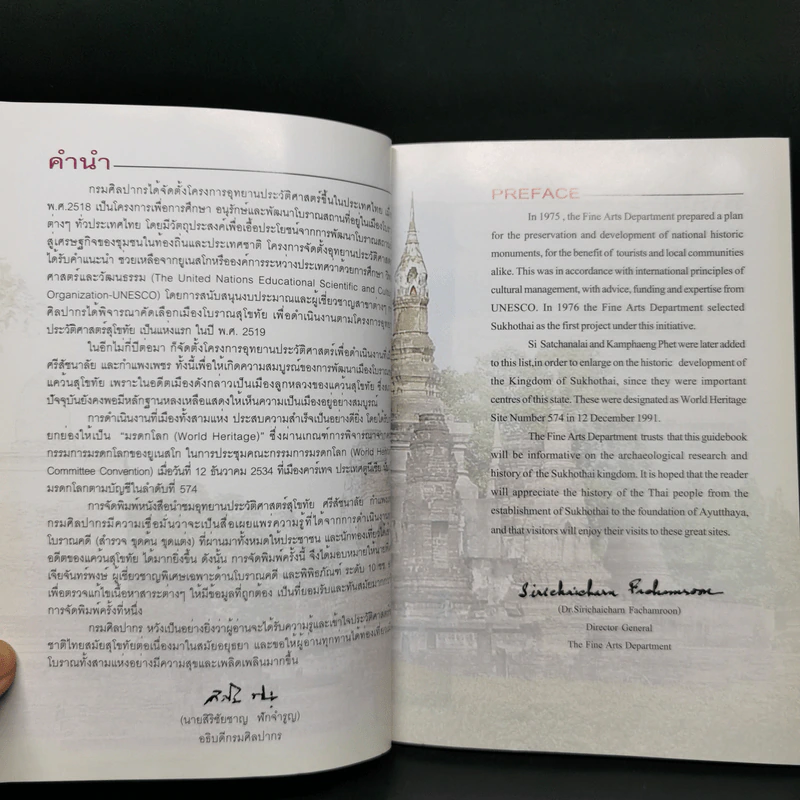 คำนำ
กรมศิลปากรได้จัดตั้งโครงการอุทยานประวัติศาสตร์ขึ้นในประเทศไทย
พ.ศ.2518 เป็นโครงการเพื่อการศึกษา อนุรักษ์และพัฒนาโบราณสถานที่อยู่ในเมือง
ต่างๆ ทั่วประเทศไทย โดยมีวัตถุประสงค์เพื่อเอื้อประโยชน์จากการพัฒนาโบราณสถาน
สู่เศรษฐกิจของชุมชนในท้องถิ่นและประเทศชาติ โครงการจัดตั้งอุทยานประวัติศาสตร์
ได้รับคำแนะนำ ช่วยเหลือจากยูเนสโกหรือองค์การระหว่างประเทศว่าด้วยการศึกษา
ศาสตร์และวัฒนธรรม (The United Nations Educational Scientific and
Organization-UNESCO) โดยการสนับสนุนงบประมาณและผู้เชี่ยวชาญสาขาต่างๆ
ศิลปากรได้พิจารณาคัดเลือกเมืองโบราณสุโขทัย เพื่อดำเนินงานตามโครงการอุทยาน
ประวัติศาสตร์สุโขทัย เป็นแห่งแรก ในปี พ.ศ. 2519
ในอีกไม่กี่ปีต่อมา ก็จัดตั้งโครงการอุทยานประวัติศาสตร์เพื่อดำเนินงานที่
ศรีสัชนาลัย และกำแพงเพชร ทั้งนี้เพื่อให้เกิดความสมบูรณ์ของการพัฒนาเมืองโบราณ
แคว้นสุโขทัย เพราะในอดีตเมืองดังกล่าวเป็นเมืองลูกหลวงของแคว้นสุโขทัย
ปัจจุบันยังคงพอมีหลักฐานหลงเหลือแสดงให้เห็นความเป็นเมืองอยู่อย่างสมบูรณ์
การดำเนินงานที่เมืองทั้งสามแห่ง ประสบความสำเร็จเป็นอย่างดียิ่ง โดยได้
ยกย่องให้เป็น “มรดกโลก (World Heritage)” ซึ่งผ่านเกณฑ์การพิจารณาจาก
กรรมการมรดกโลกของยูเนสโก ในการประชุมคณะกรรมการมรดกโลก (World
Committee Convention) เมื่อวันที่ 12 ธันวาคม 2534 ที่เมืองคาร์เทจ ประเทศตูนีเซีย
มรดกโลกตามบัญชีในลำดับที่ 574
การจัดพิมพ์หนังสือนำชมอุทยานประวัติศาสตร์สุโขทัย ศรีสัชนาลัย
กรมศิลปากรมีความเชื่อมั่นว่าจะเป็นสื่อเผยแพร่ความรู้ที่ได้จากการดำเนินงาน
โบราณคดี (สำรวจ ขุดค้น ขุดแต่ง) ที่ผ่านมาทั้งหมดให้ประชาชน และนักท่องเที่ยวได้
อดีตของแคว้นสุโขทัย ได้มากยิ่งขึ้น ดังนั้น การจัดพิมพ์ครั้งนี้ จึงได้มอบหมายให้
เจียจันทร์พงษ์ ผู้เชี่ยวชาญพิเศษเฉพาะด้านโบราณคดี และพิพิธภัณฑ์ ระดับ 10
เพื่อตรวจแก้ไขเนื้อหาสาระต่างๆ ให้มีข้อมูลที่ถูกต้อง เป็นที่ยอมรับและทันสมัย
การจัดพิมพ์ครั้งที่หนึ่ง
กรมศิลปากร หวังเป็นอย่างยิ่งว่าผู้อ่านจะได้รับความรู้และเข้าใจประวัติศาสตร์
ชาติไทยสมัยสุโขทัยต่อเนื่องมาในสมัยอยุธยา และขอให้ผู้อ่านทุกท่านได้ท่องเที่ยว
โบราณทั้งสามแห่งอย่างมีความสุขและเพลิดเพลินมากขึ้น
(นายสิริชัยชาญ ฟักจำรูญ)
อธิบดีกรมศิลปากร
PREFACE
In 1975 , the Fine Arts Department prepared a plan
for the preservation and development of national historic
monuments, for the benefit of tourists and local communities
alike. This was in accordance with international principles of
cultural management, with advice, funding and expertise from
UNESCO. In 1976 the Fine Arts Department selected
Sukhothai as the first project under this initiative.
Si Satchanalai and Kamphaeng Phet were later added
to this list,in order to enlarge on the historic development of
the Kingdom of Sukhothai, since they were important
centres of this state. These were designated as World Heritage
Site Number 574 in 12 December 1991.
The Fine Arts Department trusts that this guidebook
will be informative on the archaeological research and
history of the Sukhothai kingdom. It is hoped that the reader
will appreciate the history of the Thai people from the
establishment of Sukhothai to the foundation of Ayutthaya,
and that visitors will enjoy their visits to these great sites.
Sirichaicharn Fachamroon
(Dr.Sirichaicharn Fachamroon)
Director General
The Fine Arts Department